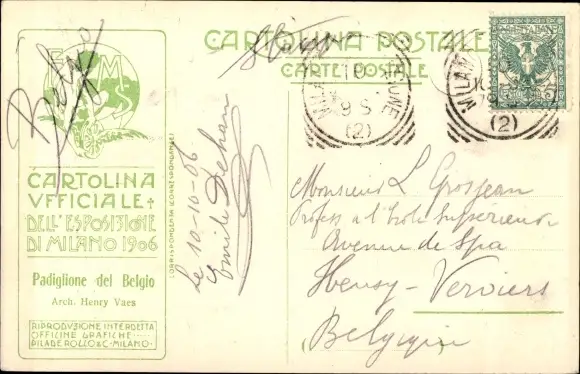 CARTOLINA POSTALE
CARTE POSTALE
CARTOLINA
VFFICIALE
DELL'ESPOSIZIONE
DI MILANO 1906
Padiglione del Belgio
Arch. Henry Vaes
RIPRODVZIONE INTERDETTA
OFFICINE GRAFICHE
PILADE ROCCO & C. MILANO
CORRISPONDENZA (CORRESPONDANCE)
le 10-10-06
Emile Dehan
MILANO
(2)
MILANO
(2)
Monsieur L Grosjean
Profess à l'Ecole Supérieure
Avenue de Spa
Heusy-Verviers
Belgique